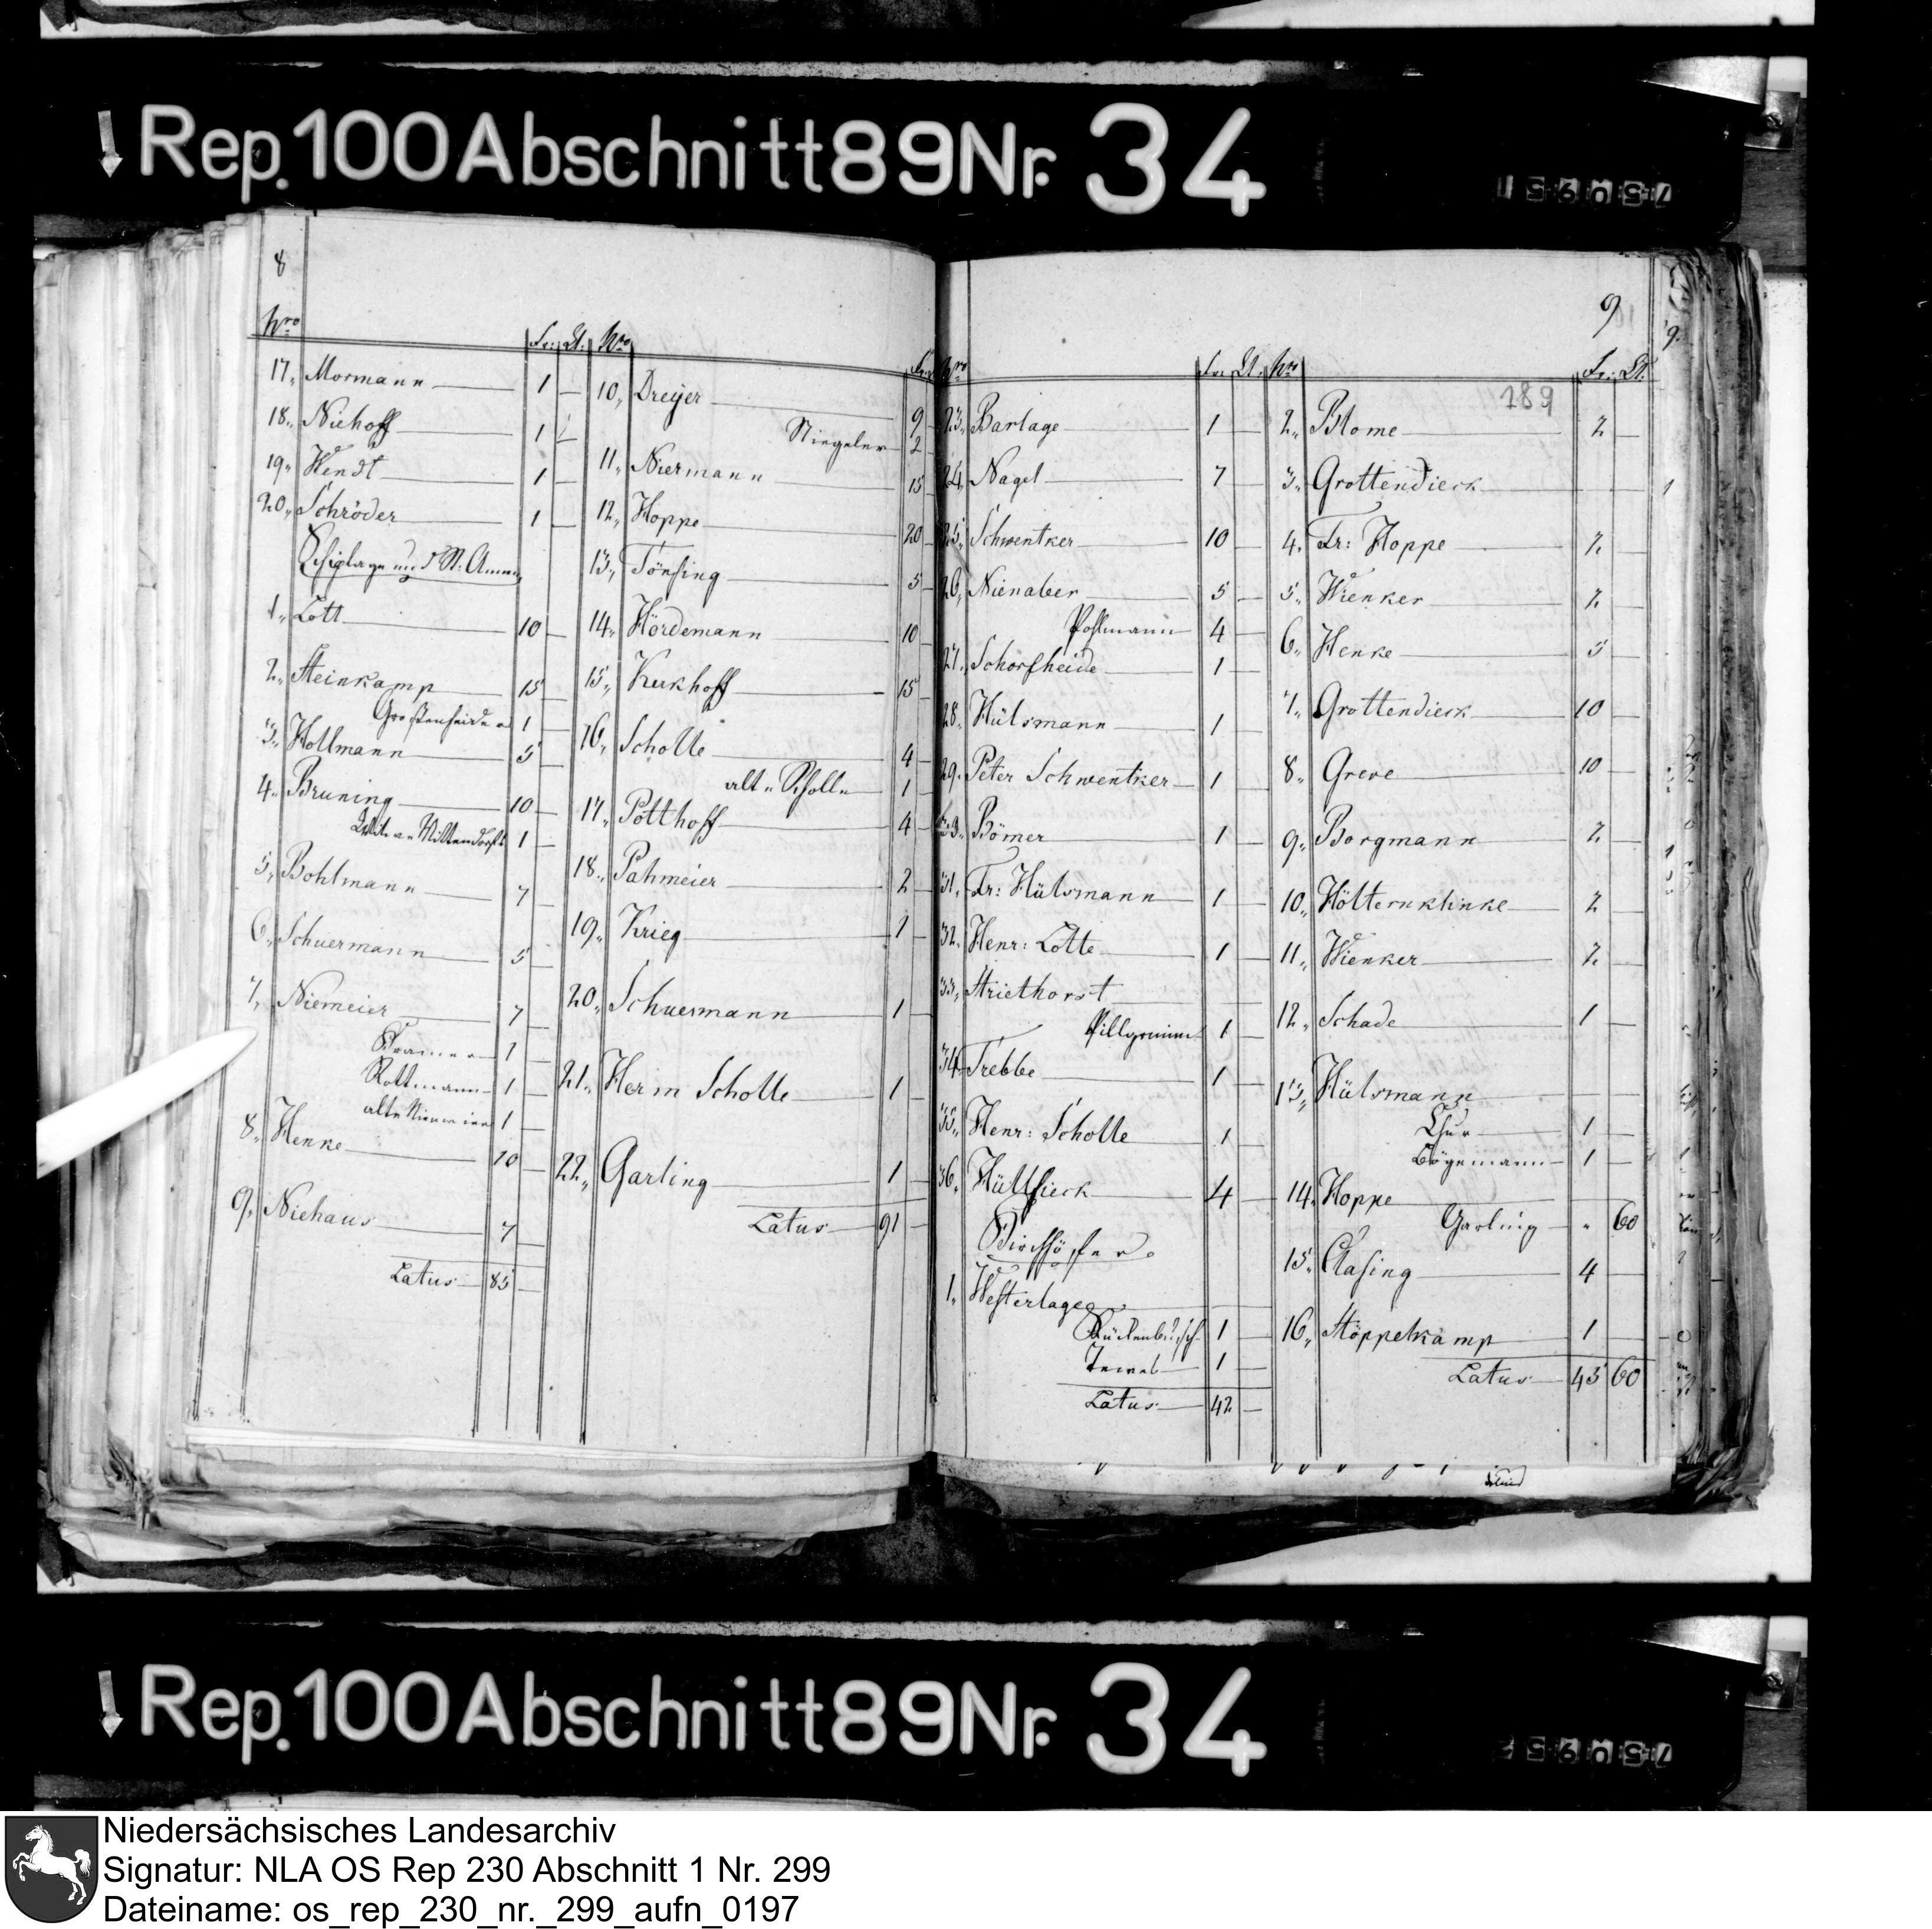 Rep. 100 Abschnitt 89 Nr. 34
8
Nro Fr: Ct:
17, Mormann 1 —
18, Niehoff 1 —
19, Wendt 1 —
20, Schröder 1 —
1, Lott 10 —
2, Steinkamp 15 —
1 —
3, Hollmann 5 —
4, Bruning 10 —
1 —
5, Bohlmann 7 —
6, Schuermann 5 —
7, Niemeier 7 —
Cramer 1 —
Rottmann 1 —
alte Niemeier 1 —
8, Henke 10 —
9, Niehaus 7 —
Latus 85 —
Nro Fr:
10, Dreyer 9
Niegeler 2
11, Niermann 15
12, Hoppe 20
13, Tönsing 5
14, Hördemann 10
15, Kerkhoff 15
16, Scholle 4
alte Scholle 1
17, Potthoff 4
18, Pahmeier 2
19, Krieg 1
20, Schuermann 1
21, Herm Scholle 1
22, Garling 1
Latus 91
9
Nro Fr: Ct:
23, Barlage 1 —
24, Nagel 7 —
25, Schwentker 10 —
26, Nienaber 5 —
Pohlmann 4 —
27, Schorfheide 1
28, Hülsmann 1
29, Peter Schwentker 1 —
Bömer 1 —
31, Fr: Hülsmann 1 —
32, Henr: Lotte 1 —
33, Striethorst
Pillgrimm 1 —
34, Trebbe 1 —
35, Henr: Scholle 1
36, Hüllsieck 4 —
1, Westerlage
1 —
1 —
Latus 42 —
Nro Fr: Ct:
289
2, Blome 2 —
3, Grottendieck
4, Fr: Hoppe 2 —
5, Wienker 2 —
6, Henke 5
7, Grottendieck 10 —
8, Greve 10 —
9, Borgmann 2 —
10, Hölternklinke 2 —
11, Wienker 2 —
12, Schade 1 —
13, Hülsmann
1 —
Bögemann 1 —
14, Hoppe
Garling " 60
15, Clasing 4 —
16, Stöppelkamp 1 —
Latus 45 60
9.
Rep. 100 Abschnitt 89 Nr. 34
Niedersächsisches Landesarchiv
Signatur: NLA OS Rep 230 Abschnitt 1 Nr. 299
Dateiname: os_rep_230_nr._299_aufn_0197